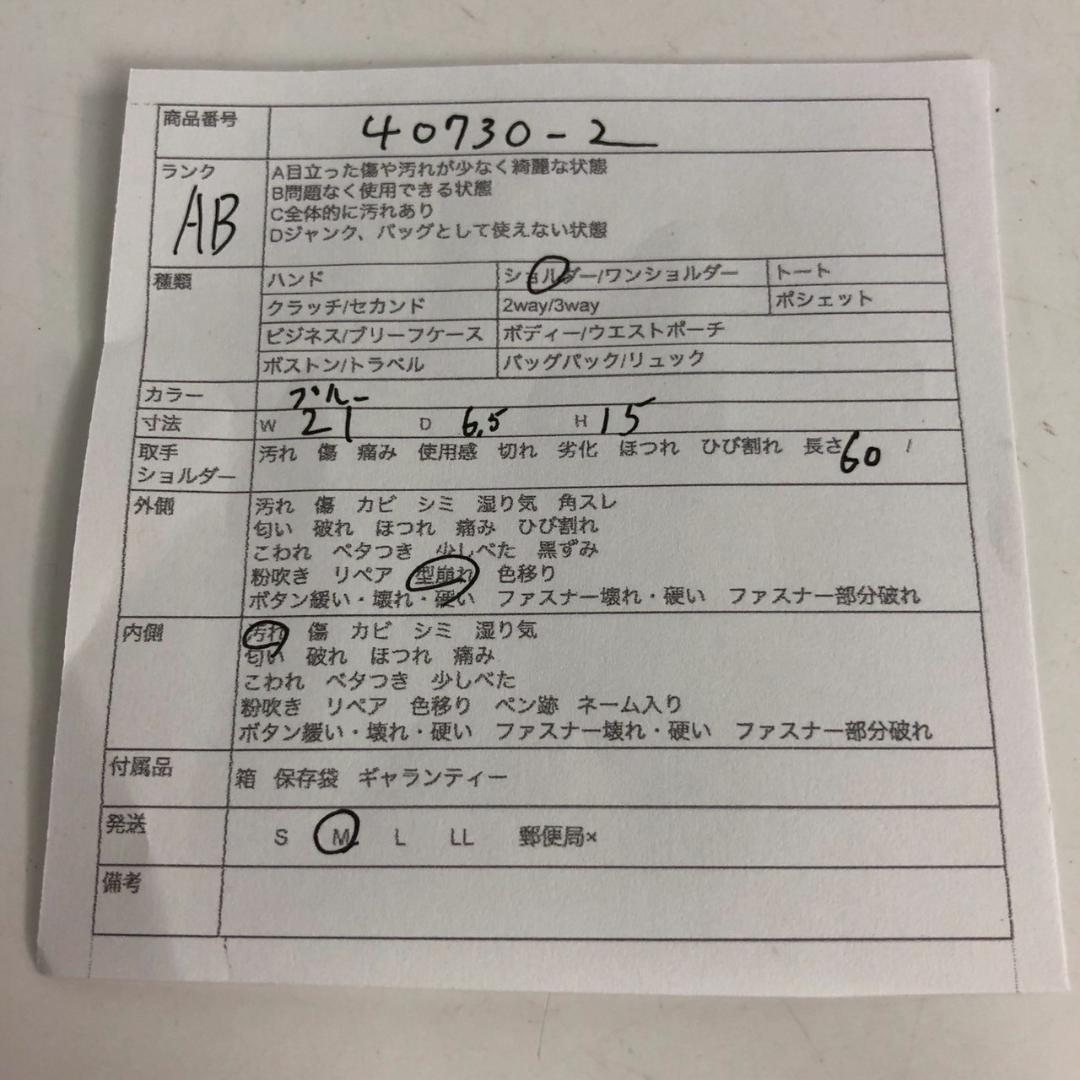 商品番号 40730-2
ランク AB
A目立った傷や汚れが少なく綺麗な状態
B問題なく使用できる状態
C全体的に汚れあり
Dジャンク、バッグとして使えない状態
種類 ハンド ショルダー/ワンショルダー トート
クラッチ/セカンド 2way/3way ポシェット
ビジネス/ブリーフケース ボディー/ウエストポーチ
ボストン/トラベル バッグパック/リュック
カラー ブルー
寸法 W 21 D 6.5 H 15
取手 汚れ 傷 痛み 使用感 切れ 劣化 ほつれ ひび割れ 長さ60 /
ショルダー
外側 汚れ 傷 カビ シミ 湿り気 角スレ
匂い 破れ ほつれ 痛み ひび割れ
こわれ ベタつき 少しべた 黒ずみ
粉吹き リペア 型崩れ 色移り
ボタン緩い・壊れ・硬い ファスナー壊れ・硬い ファスナー部分破れ
内側 汚れ 傷 カビ シミ 湿り気
匂い 破れ ほつれ 痛み
こわれ ベタつき 少しべた
粉吹き リペア 色移り ペン跡 ネーム入り
ボタン緩い・壊れ・硬い ファスナー壊れ・硬い ファスナー部分破れ
付属品 箱 保存袋 ギャランティー
発送 S M L LL 郵便局×
備考